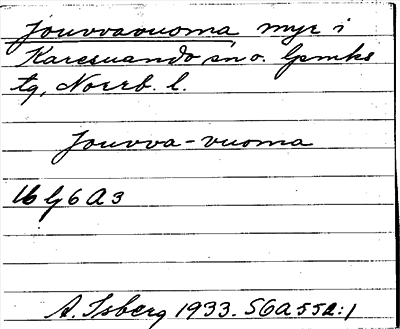 Jouvvavuoma myr i
Karesuando sn o. lpmks
tg, Norrb. l.
Jouvva-vuoma
16 G 6 A 3
A. Isberg 1933. S6A55a:1